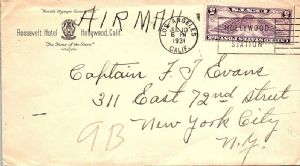 World's Olympic Games
Roosevelt Hotel Hollywood, Calif.
"The Home of the Stars"
AIR MAIL
LOS ANGELES
6 PM
1931
CALIF.
HOLLYWOOD
STATION
Captain F J Evans
311 East 72nd Street
New York City
N.Y.
9B